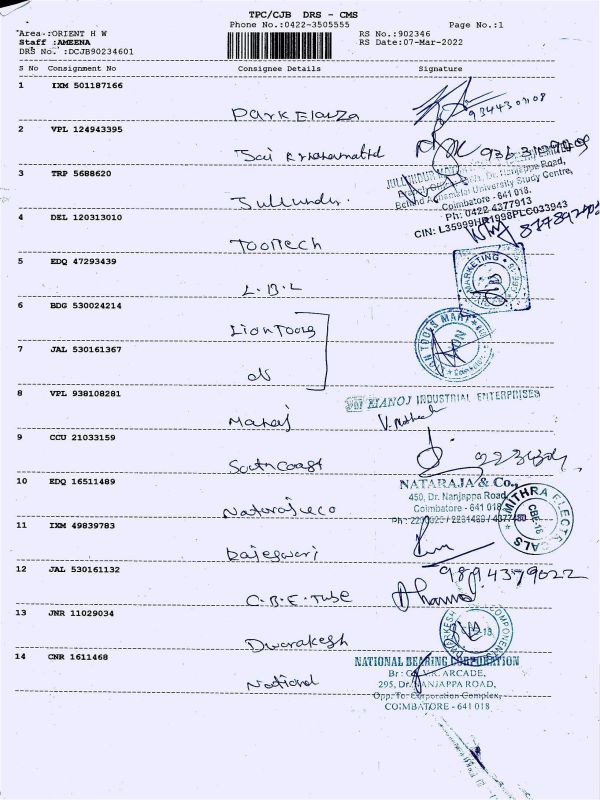 TPC/CJB DRS - CMS
Phone No.:0422-3505555
Page No.:1
Area :ORIENT H W
Staff :AMEENA
DRS No. :DCJB90234601
RS No.:902346
RS Date:07-Mar-2022
S No Consignment No Consignee Details Signature
1 IXM 501187166
Park Elanza
2 VPL 124943395
Jai Krishna
3 TRP 5688620
Jullundur.
Dr. Nanjappa Road,
University Study Centre,
Coimbatore - 641 018.
Ph: 0422 4377913
CIN: L35999HR1998PLC033943
4 DEL 120313010
ToolTech
5 EDQ 47293439
L.B.L
MARKETING
6 BDG 530024214
Lion Tools
TOOLS MART
7 JAL 530161367
8 VPL 938108281
Manoj
MANOJ INDUSTRIAL ENTERPRISES
9 CCU 21033159
South Coast
10 EDQ 16511489
Nataraj & co
NATARAJA & Co.,
450, Dr. Nanjappa Road
Coimbatore - 641 018
MITHRA ELECTRICALS
CBE-18
11 IXM 49839783
Rajeswari
12 JAL 530161132
C.B.E. Tube
9894379022
13 JNR 11029034
Dwarakesh
DWARKESH COMPONENT
14 CNR 1611468
National
NATIONAL BEARING CORPORATION
V.R. ARCADE,
295, Dr. NANJAPPA ROAD,
Opp. To: Corporation Complex,
COIMBATORE - 641 018